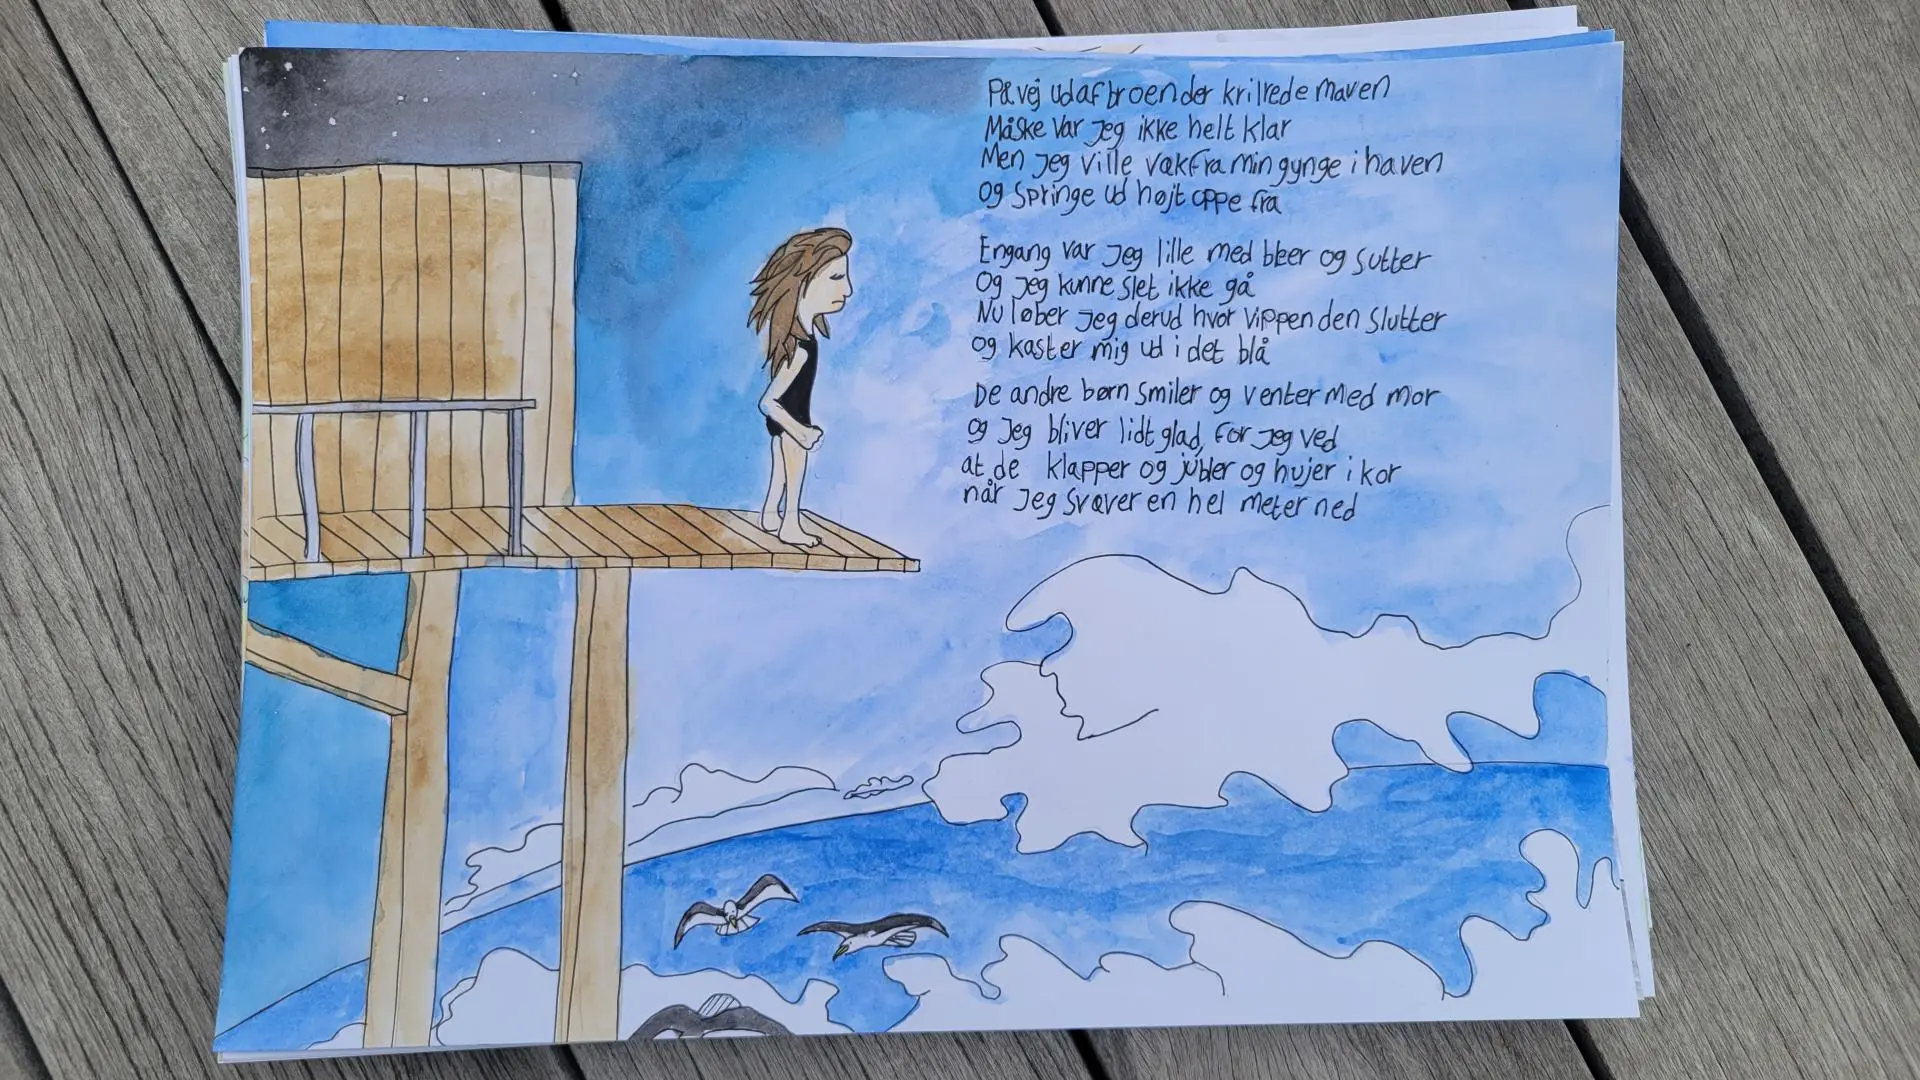 På vej ud af broen der krilrede maven
Måske var jeg ikke helt klar
Men jeg ville væk fra min gynge i haven
og springe ud højt oppe fra
Engang var jeg lille med bleer og sutter
Og jeg kunne slet ikke gå
Nu løber jeg derud hvor vippen den slutter
og kaster mig ud i det blå
De andre børn smiler og venter med mor
og jeg bliver lidt glad, for jeg ved
at de klapper og jubler og hujer i kor
når jeg svæver en hel meter ned